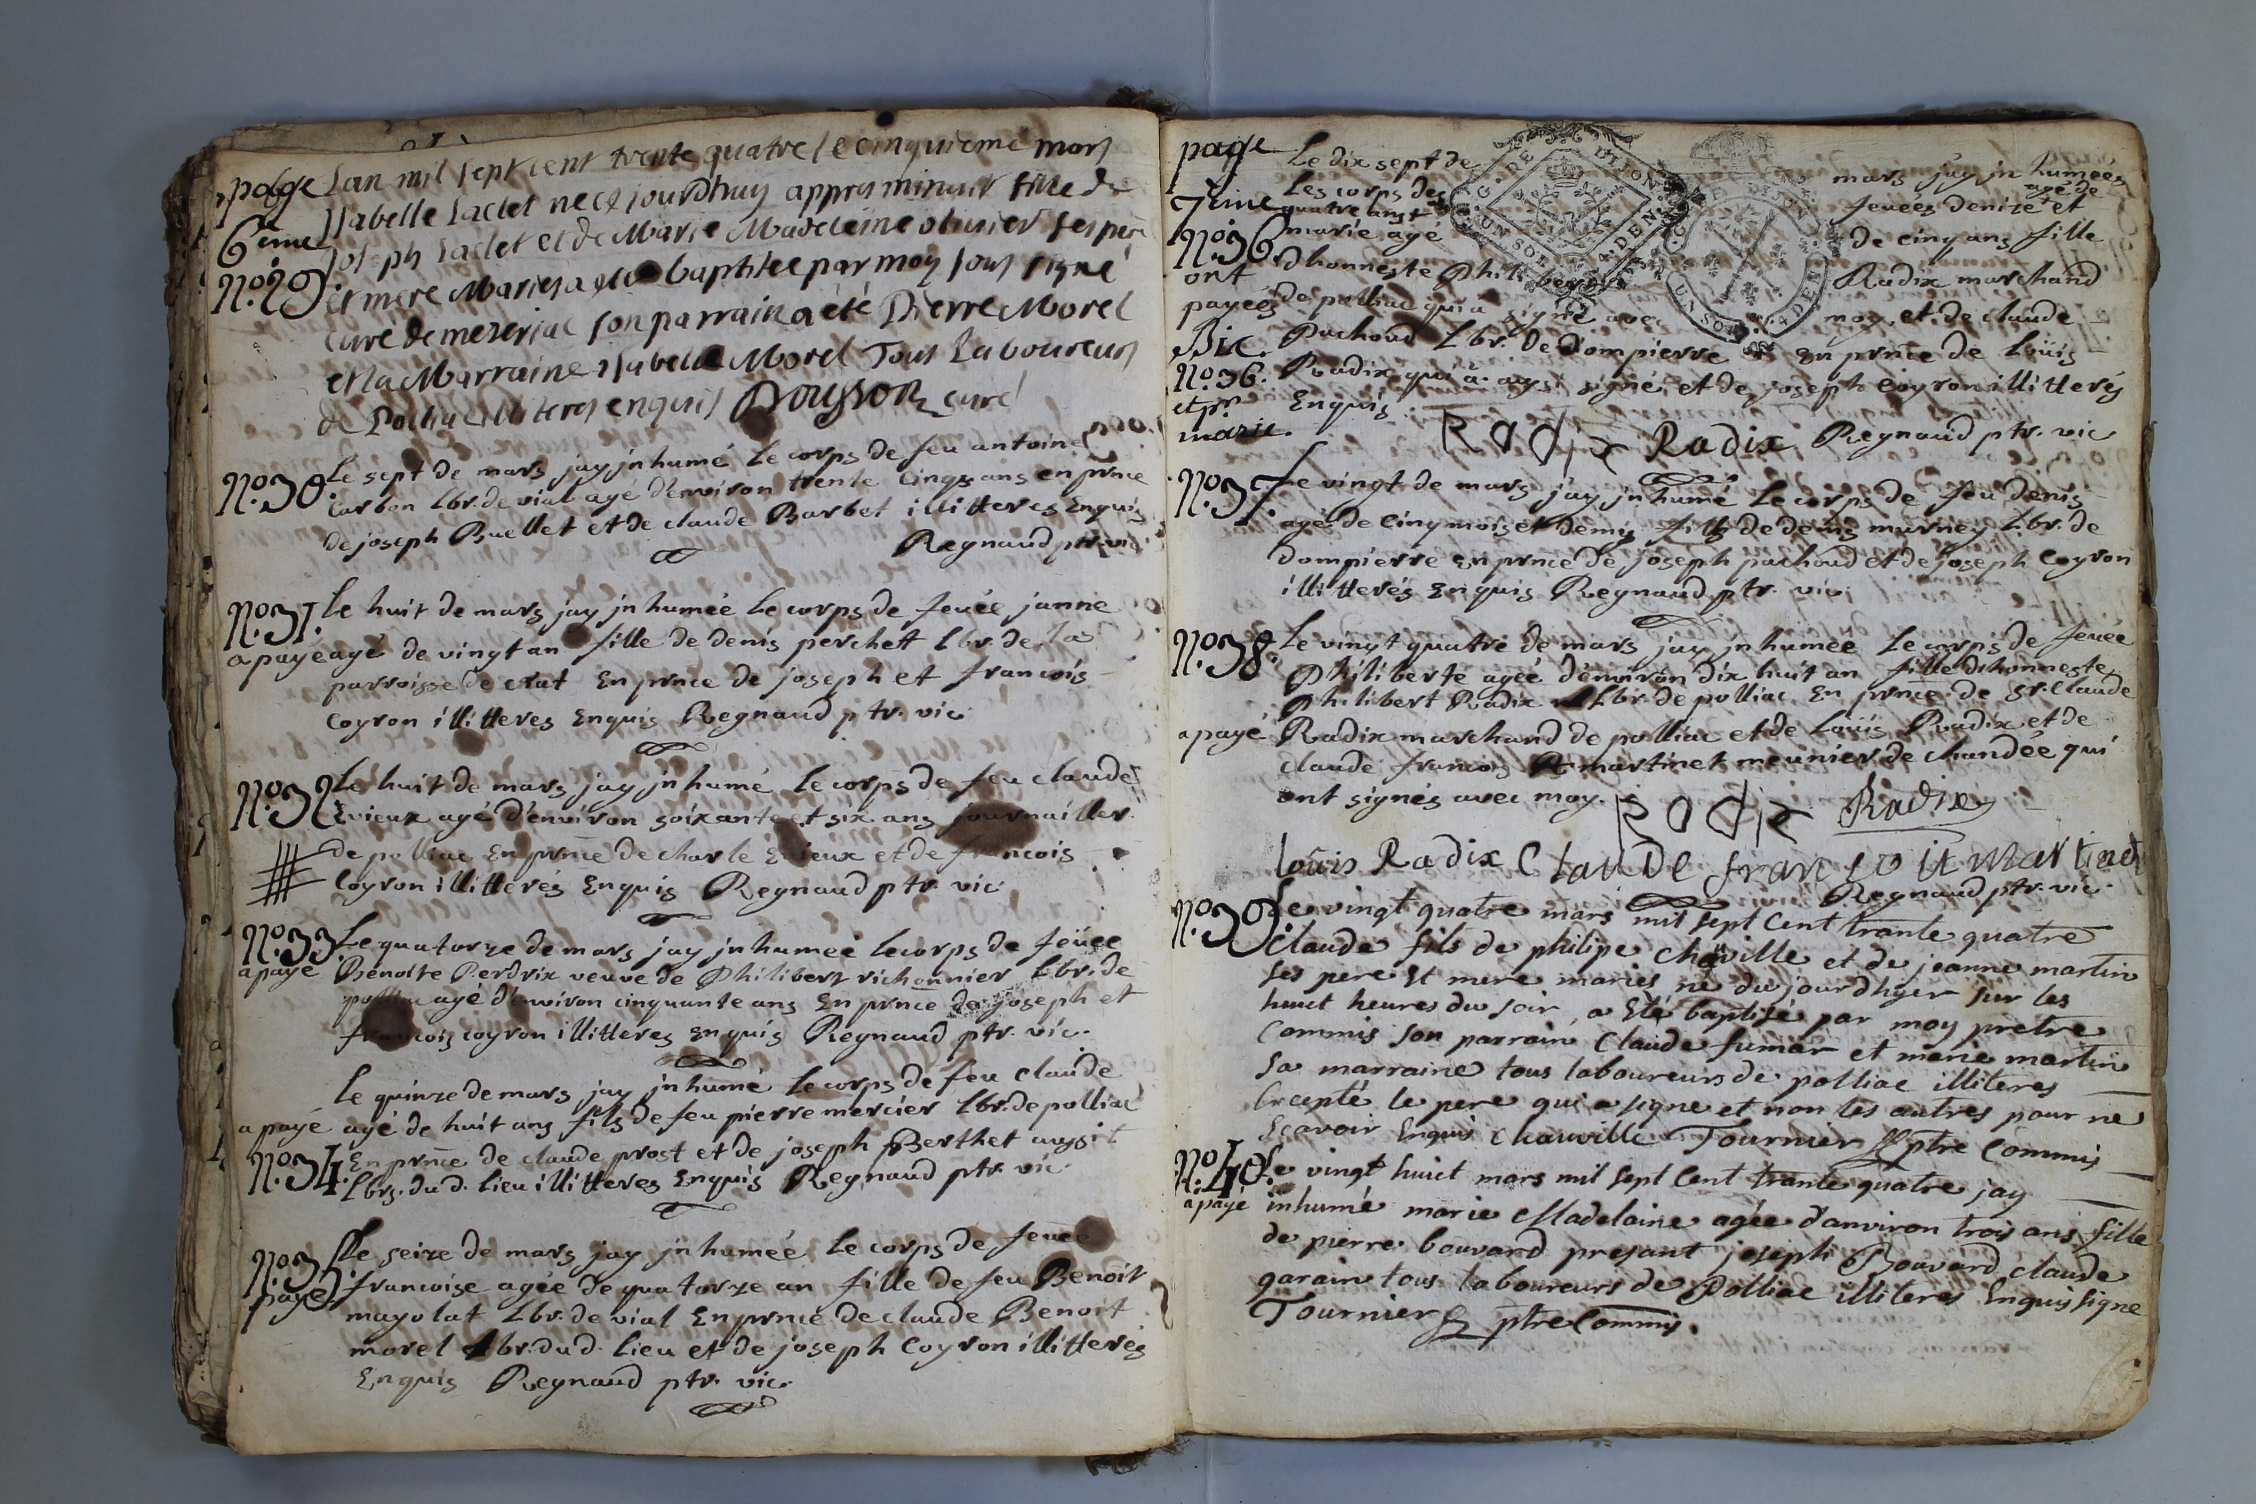 page
6eme
N.o 29.
Lan mil sept cent trente quatre le cinquieme mars
Isabelle Laclet nee ce jourdhuy appres minuit fille de
Joseph Laclet et de Marie Madeleine olivier ses pere
et mere Maries a été baptisee par moy sous signé
curé de meseriac son parrain a été Pierre Morel
et la Marraine Isabelle Morel Tous Laboureurs
de illiteres enquis curé
N.o 30.
Le sept de mars jay jnhumé Le corps de feu antoine
Carbon Lbr. de vial agé d'environ trente cinqs ans en prnce
de joseph Buellet et de claude Barbet illitteres Enquis
Regnaud ptr. vic
N.o 31.
a payé
Le huit de mars jay jnhumée Le corps de feuée janne
agé de vingt an fille de denis perchett Lbr. de la
parroisse de crat En prnce de joseph et francois
Coyron illitteres Enquis Regnaud ptr. vic
N.o 32
Le huit de mars jay jnhumé Le corps de feu claude
Evieux agé d'environ soixante et six ans journaillier
de polliac En prnce de charle Evieux et de francois
Coyron illitterés Enquis Regnaud ptr. vic
N.o 33.
a payé
Le quatorze de mars jay jnhumeé Le corps de feüee
Benoite Perdrix veuve de Philibert richonnier Lbr. de
polliac agé d'environ cinquante ans En prnce de joseph et
francois coyron illitteres Enquis Regnaud ptr. vic.
Le quinze de mars jay jnhumé Le corps de feu claude
a payé agé de huit ans fils de feu pierre mercier Lbr. de polliac
N.o 34. En prnce de claude prost et de joseph Berthet aussi
Lbrs. du d. Lieu illitteres Enquis Regnaud ptr. vic
N.o 35
payé
Le seize de mars jay jnhumée Le corps de feuée
francoise agée de quatorze an fille de feu Benoit
mayolat Lbr. de vial En prnce de claude Benoit
morel Lbr. du d. Lieu et de joseph Coyron illitterés
Enquis Regnaud ptr. vic.
page
7eme
N.o 36
ont
payées
Bic.
N.o 36.
et pr.
marie.
Le dix sept de mars jay jnhumées
Les corps des feuées denize et agé de
quatre ans marie agé de cinq ans fille
dhonneste Philibert Radix marchand
de polliac qui a signé avec moy et de claude
Puchoud Lbr. de dompierre En prnce de Loüis
Radix qui a aussi signé et de joseph Coyron illitterés
Enquis.
Radix Radix Regnaud ptr. vic
N.o 37.
Le vingt de mars jay jnhumé Le corps de feu denis
agé de cinq mois et demis fils de denis murney Lbr. de
dompierre En prnce de joseph puchoud et de joseph Coyron
illitterés Enquis Regnaud ptr. vic
N.o 38.
Le vingt quatre de mars jay jnhumée Le corps de feuée
Philiberte agée d'environ dix huit an fille dhonneste
Philibert Radix Lbr. de polliac En prnce de sr. Claude
a payé Radix marchand de polliac et de Loüis Radix et de
claude francois martinet meunier de chandée qui
ont signés avec moy. Radix Radix
louis Radix Claude francois Martinet
Regnaud ptr. vic.
N.o 39.
Le vingt quatre mars mil sept Cent trante quatre
Claude fils de philipe chaville et de jeanne martin
ses pere et mere maries né du jourdhyer sur les
huict heures du soir a Eté baptisé par moy pretre
Commis son parrain Claude fumar et marie martin
sa marraine tous laboureurs de polliac illiteres
Excepté le pere qui a signe et non les autres pour ne
Scavoir Enquis Chauville Tournier ptre Commis
N.o 40.
a payé
Le vingt huict mars mil sept Cent trante quatre jay
inhumé marie Madelaine agée d'anviron trois ans fille
de pierre bouvard presant joseph Bouvard claude
garain tous laboureurs de Polliac illiteres Enquis signe
Tournier ptre Commis.